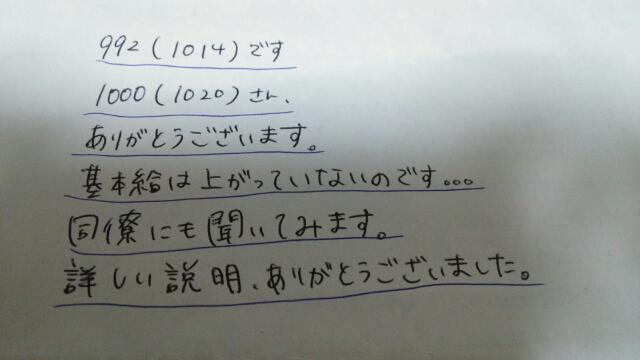 992(1014)です
1000(1020)さん、
ありがとうございます。
基本給は上がっていないのです...
同僚にも聞いてみます。
詳しい説明、ありがとうございました。